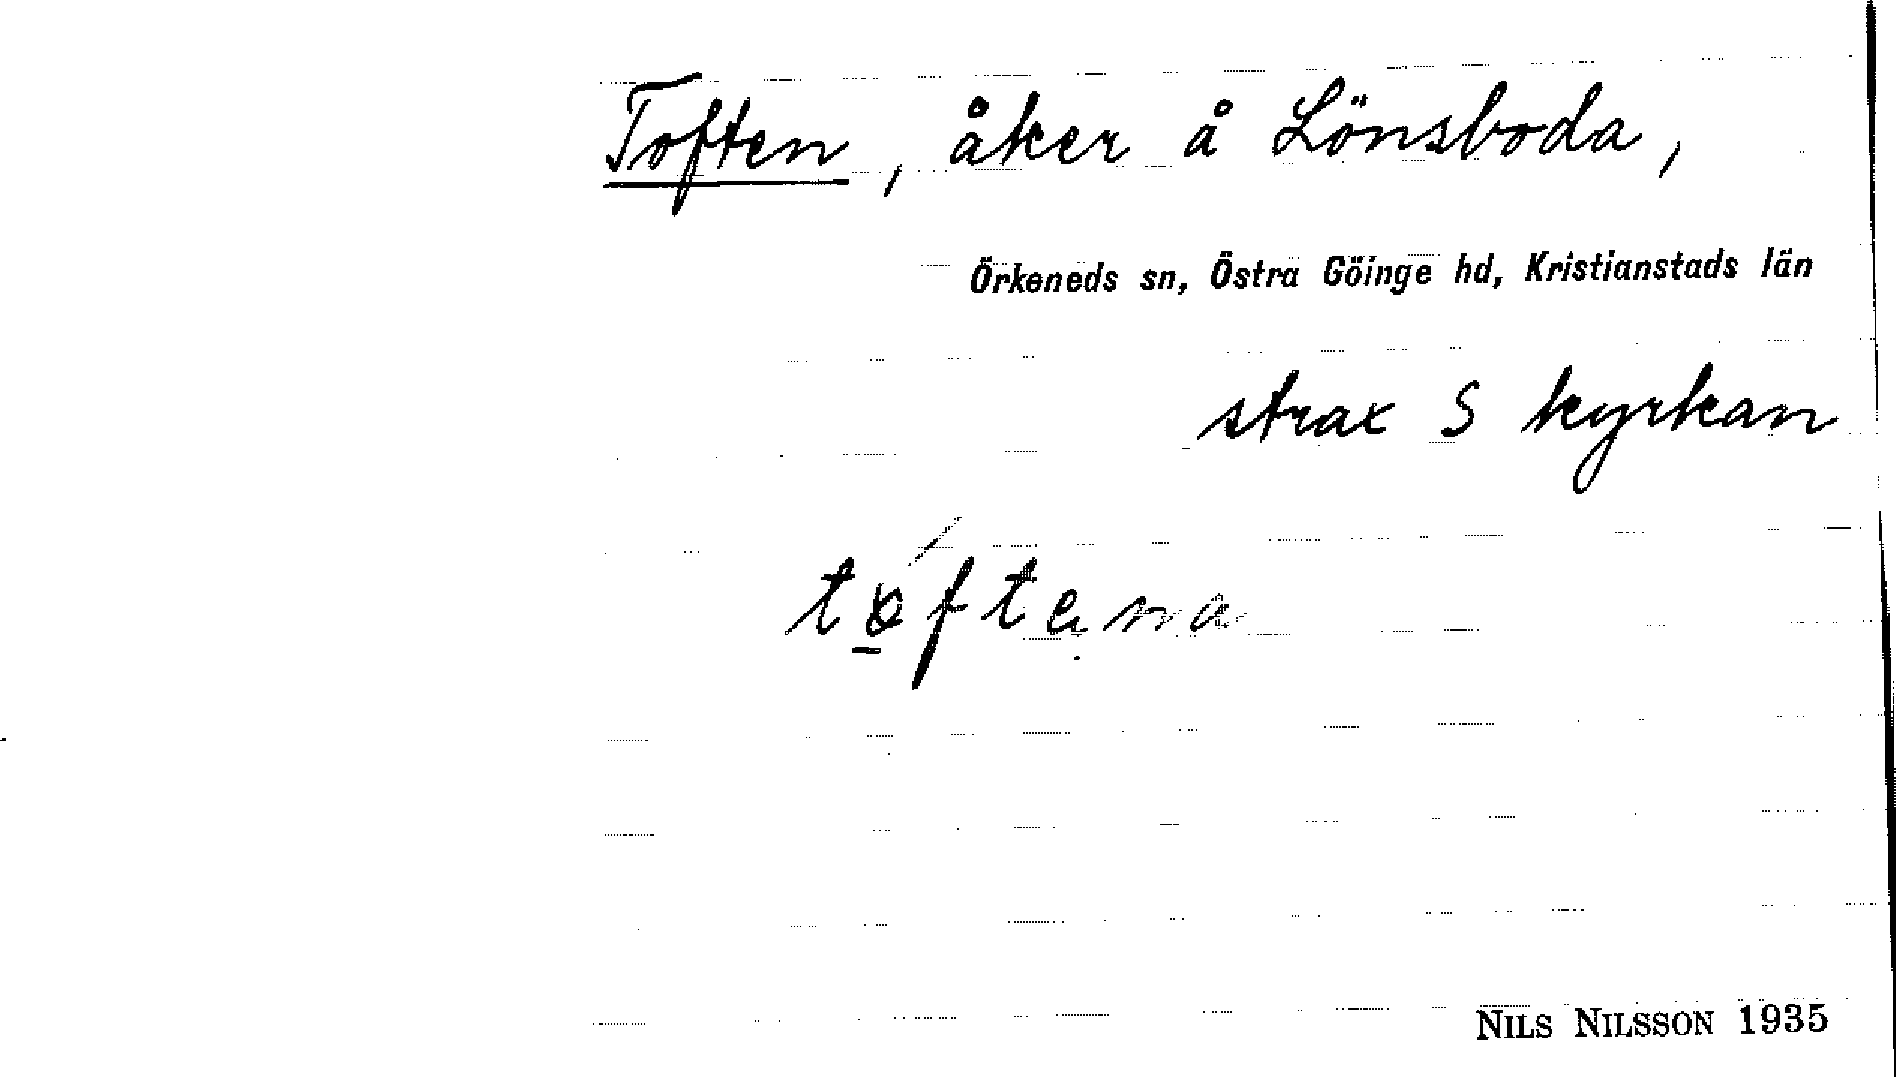 Toften, åker å Lönsboda,
Örkeneds sn, Östra Göinge hd, Kristianstads län
strax S kyrkan
NILS NILSSON 1935